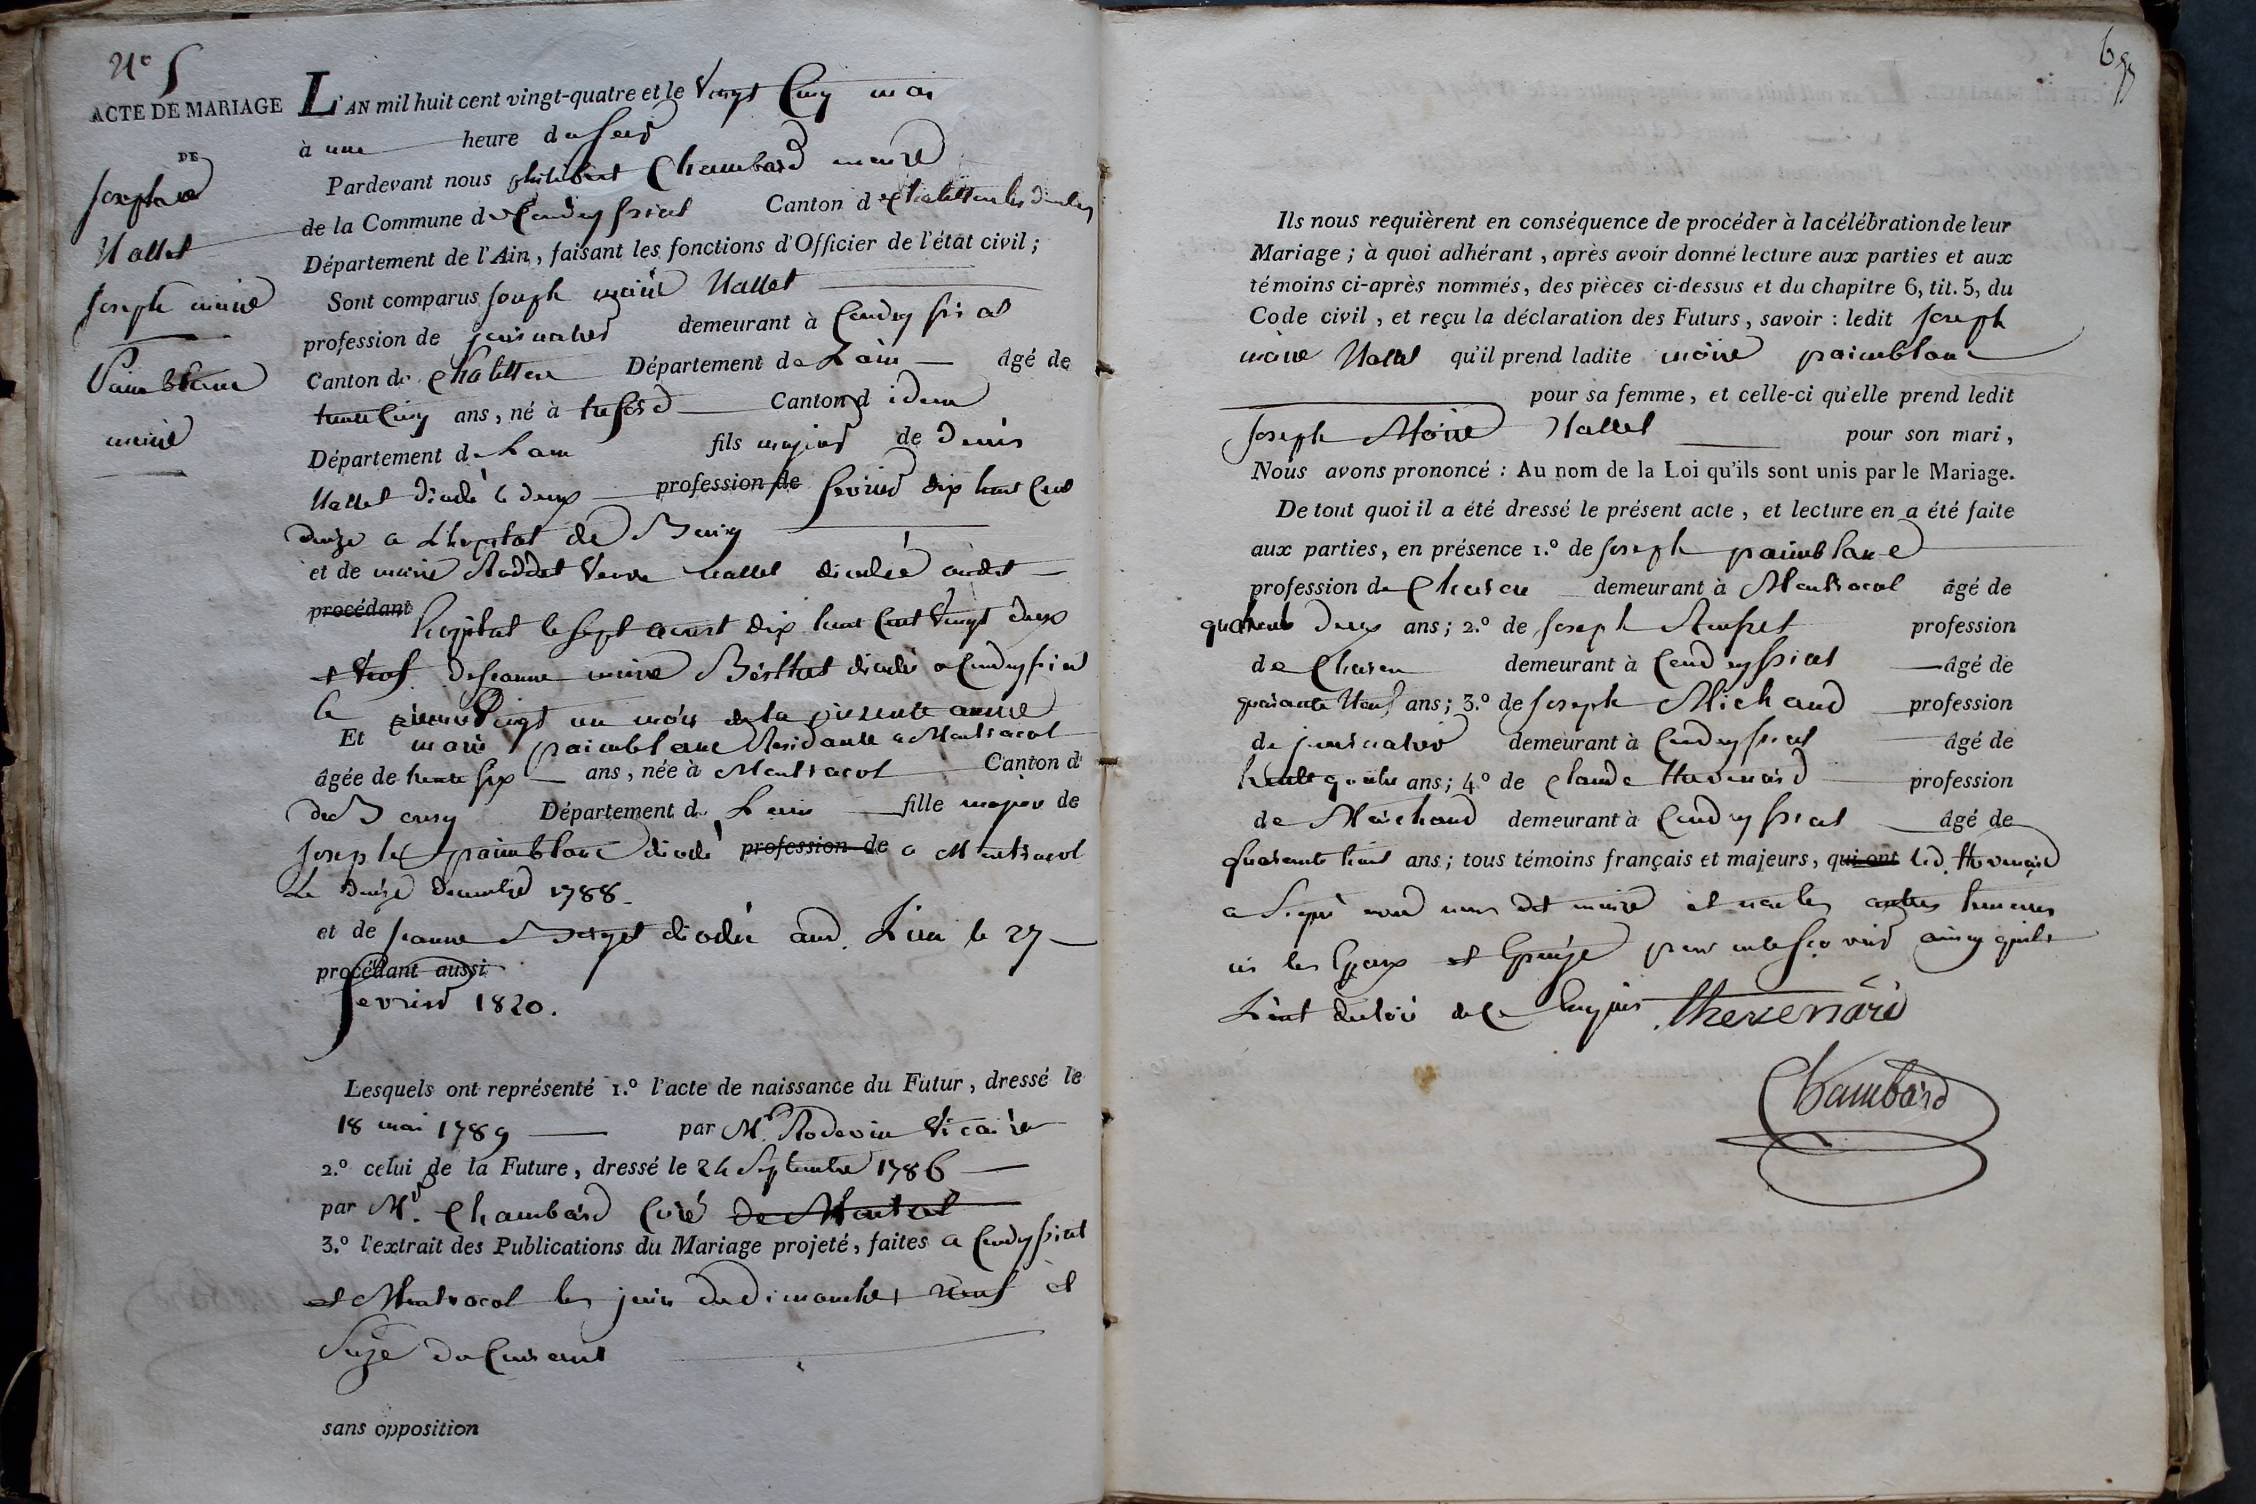 N° 5
ACTE DE MARIAGE
DE
Joseph
Nallet
Joseph marie
Paimblanc
marie
L'AN mil huit cent vingt-quatre et le vingt Cinq mai
à une heure du soir
Pardevant nous philibert Chambard maire
de la Commune de Condeyssiat Canton de
Département de l'Ain, faisant les fonctions d'Officier de l'état civil ;
Sont comparus Joseph marie Nallet
profession de journalier demeurant à Condeyssiat
Canton de Chatillon Département de Lain âgé de
trente Cinq ans, né à Canton d idem
Département de Lain fils majeur de denis
Nallet décédé le deux profession de fevrier dix huit Cent
douze a Lhopital de Bourg
et de marie Veuve nallet décédée audit
procédant hopital le sept aoust dix huit Cent Vingt deux
et Veuf de Jeanne marie décédée a Condeyssiat
le Vingt un mars de la présente année
Et marie paimblanc Residante a Montracol
âgée de trente six ans, née à Montracol Canton d
de Bourg Département de Lain fille majeur de
Joseph paimblanc décédé profession de a Montracol
Le douze decembre 1788
et de Jeanne décédée aud. Lieu le 27
procédant aussi
fevrier 1820.
Lesquels ont représenté 1.° l'acte de naissance du Futur, dressé le
18 mai 1789 par Mr. Rodevin Vicaire
2.° celui de la Future, dressé le 24 Septembre 1786
par Mr. Chambard Curé
3.° l'extrait des Publications du Mariage projeté, faites a Condeyssiat
et Montracol les jours de dimanches neuf et
Seize du Courant
sans opposition
Ils nous requièrent en conséquence de procéder à la célébration de leur
Mariage ; à quoi adhérant, après avoir donné lecture aux parties et aux
témoins ci-après nommés, des pièces ci-dessus et du chapitre 6, tit. 5, du
Code civil, et reçu la déclaration des Futurs, savoir : ledit Joseph
marie Nallet qu'il prend ladite marie paimblanc
pour sa femme, et celle-ci qu'elle prend ledit
Joseph Marie Nallet pour son mari,
Nous avons prononcé : Au nom de la Loi qu'ils sont unis par le Mariage.
De tout quoi il a été dressé le présent acte, et lecture en a été faite
aux parties, en présence 1.° de Joseph paimblanc
profession de Charon demeurant à Montracol âgé de
quarente deux ans ; 2.° de Joseph profession
de Charon demeurant à Condeyssiat âgé de
quarante Neuf ans ; 3.° de Joseph Michaud profession
de journalier demeurant à Condeyssiat âgé de
trente quatre ans ; 4.° de Claude thevenard profession
de Marchand demeurant à Condeyssiat âgé de
quarente huit ans ; tous témoins français et majeurs, qui ont led. thevenard
a Signé avec nous dit maire et non les autres temoins
ni les Epoux et Epouse pour ne le sçavoir ainsy quils
L'ont declaré de ce Enquis. thevenard
Chambard